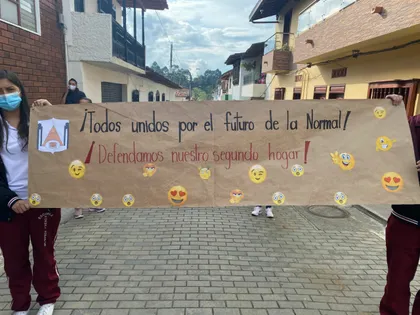 ¡Todos unidos por el futuro de la Normal!
¡Defendamos nuestro segundo hogar!